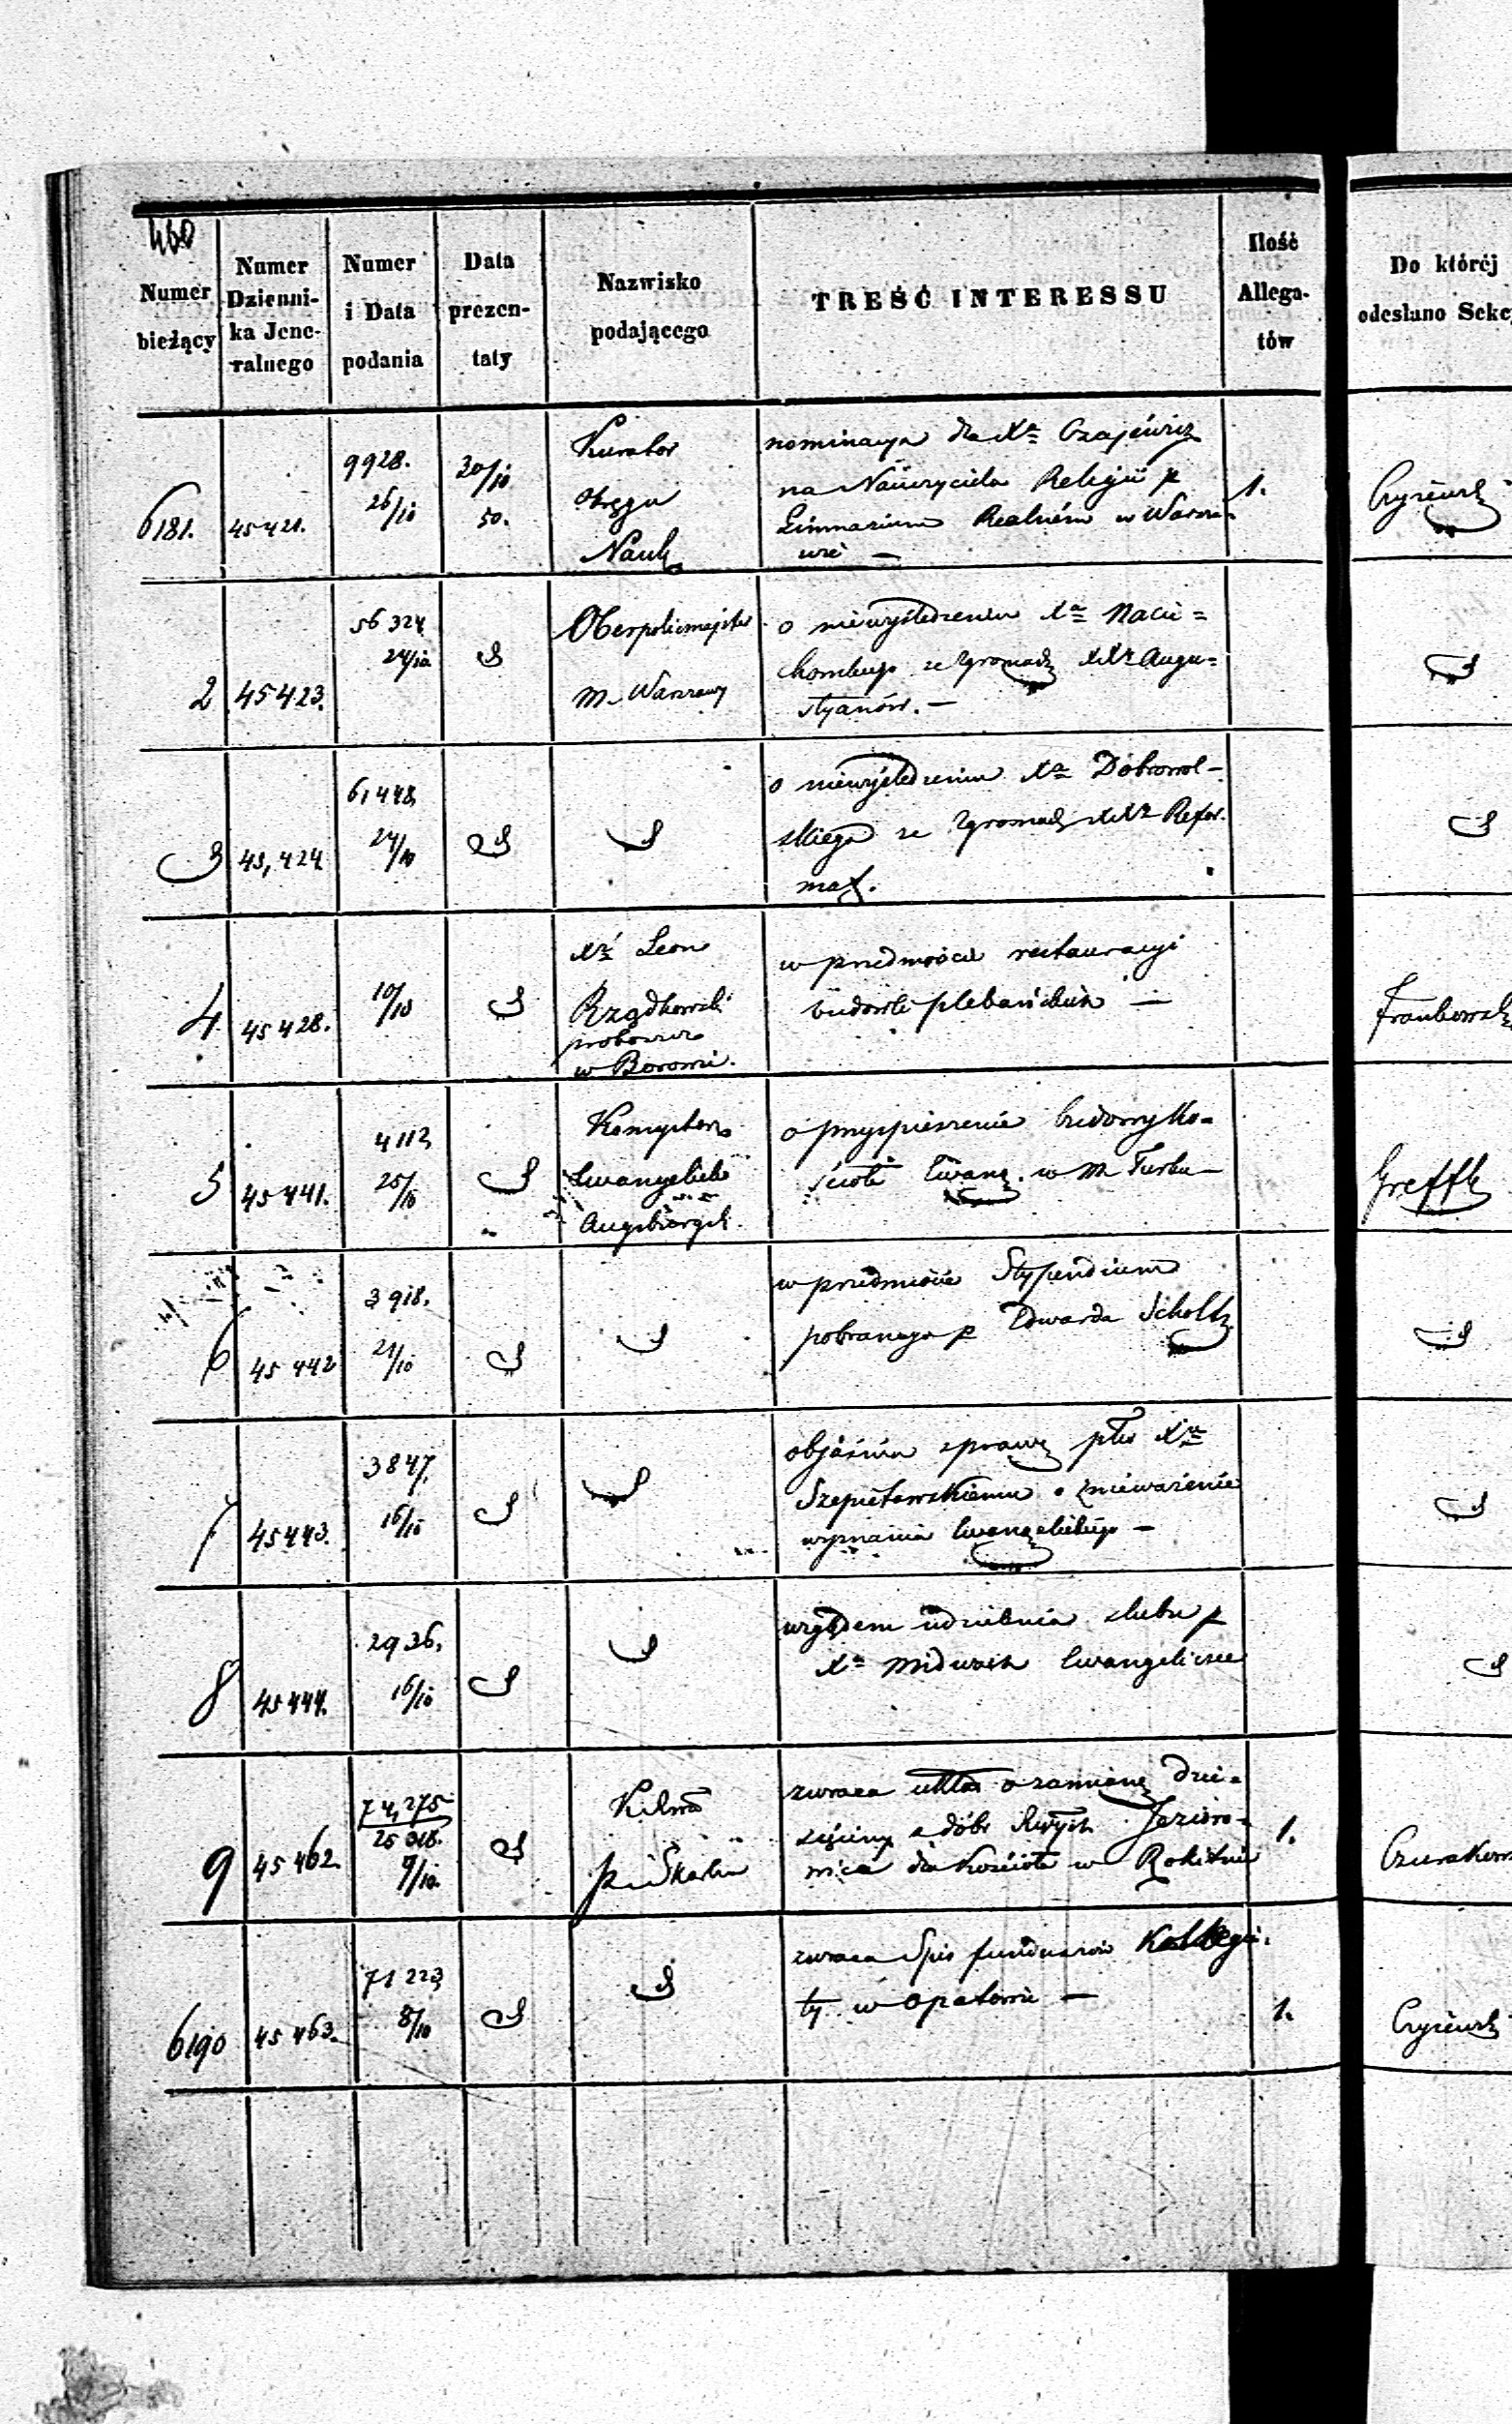 460
Numer bieżący
Numer Dzienni-
ka Jene-
ralnego
Numer
i Data
podania
Data
prezen-
taty
Nazwisko
podającego
TREŚĆ INTERESSU
Ilość
Allega-
tów
Do któréj
odesłano Sekc
6181. 45421. 9928. 26/10 30/10 50.
Kurator
Okręgu
Nauk
nominacya dla Xa Czajewicz
na Nauczyciela Religii p
Gimnazium Realném w Warsza-
wie —
1.
2 45423. 56324 24/10
Oberpolicmajster
m. Warszawy
o niewyśledzeniu Xa
ze Zgromadz XXr Augu=
styanów. —
3 45,424 61448 24/10
o niewyśledzeniu Xa Dobrowol-
skiego ze Zgromadz XXr Refor.
mat.
4 45428. 10/10
Xż Leon
Rządkowski
proboszcz
w Borowie.
w przedmiocie restauracyi
budowli plebańskich —
5 45441. 4112 25/10
Konsystorz
Ewangelick
Augsburgsk.
o przyspieszenie budowy Ko-
ścioła Ewang. w m Turku —
6 45442 3918. 21/10
w przedmiocie Stypendium
pobranego p Edwarda Scholtz
7 45443. 3847. 16/10
objaśnia sprawę płko Xu
Szepietowskiemu o znieważenie
wyznania Ewangelickiego —
8 45444. 2936. 16/10
względem udzielenia ślubu p
Xa Ewangelicki
9 45462. 74,275 25018. 9/10
zwraca układ o zamianę dzie-
sięciny z dóbr Jezioro-
nica dla Kościoła w Rokitnie
1.
6190 45463. 71223 8/10
zwraca Spis funduszów Kollegia.
ty w Opatowie —
1.